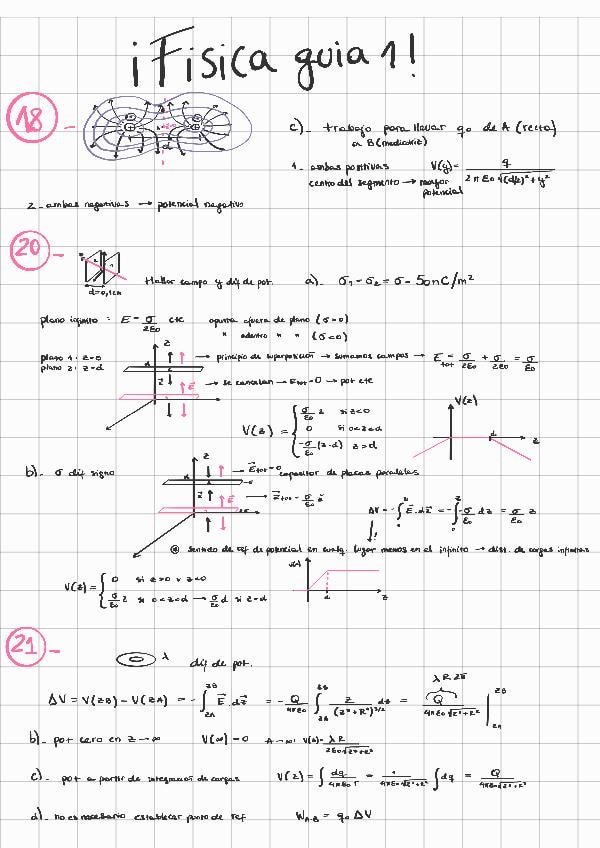 ¡Fisica guia 1!
18 -
c)_ trabajo para llevar q0 de A (recta)
a B (mediatriz)
1_ ambas positivas V(y)= q / 2πε0√(d/2)²+y²
centro del segmento → mayor potencial
2_ ambas negativas → potencial negativo
20 -
d=0,12m
Hallar campo y dif de pot. a)_ σ1 = σ2 = σ = 50nC/m²
plano infinito: E = σ/2ε0 cte apunta afuera de plano (σ>0)
" adentro " " (σ<0)
plano 1: z=0
plano 2: z=d
z
→ principio de superposición → sumamos campos → E tot = σ/2ε0 + σ/2ε0 = σ/ε0
z E → se cancelan → Etot=0 → pot cte
V(z) = { σ/ε0 z si z<0
0 si 0<z<d
-σ/ε0 (z-d) z>d
V(z) d z
b)_ σ dif signo
z
→ E tot=0 capacitor de placas paralelas
z E → E tot = σ/ε0 z
ΔV = -∫ E·dz = -∫ -σ/ε0 dz = σ/ε0 z
sentido de ref de potencial en cualq. lugar menos en el infinito → dist. de cargas infinitas
V(z) = { 0 si z>0 v z<0
σ/ε0 z si 0<z<d → σ/ε0 d si z=d
V(z) d z
21 -
λ dif de pot.
ΔV = V(zB) - V(zA) = -∫ zA zB E·dz = -Q/4πε0 ∫ zA zB z/(z²+R²)^3/2 dz = Q/4πε0√z²+R² | zA zB
λR2π
b)_ pot cero en z→∞ V(∞)=0 A→∞: V(z)= λR/2ε0√z²+R²
c)_ pot a partir de integracion de cargas V(z) = ∫ dq/4πε0 r = 1/4πε0√z²+R² ∫dq = Q/4πε0√z²+R²
d)_ no es necesario establecer punto de ref WA-B = q0 ΔV